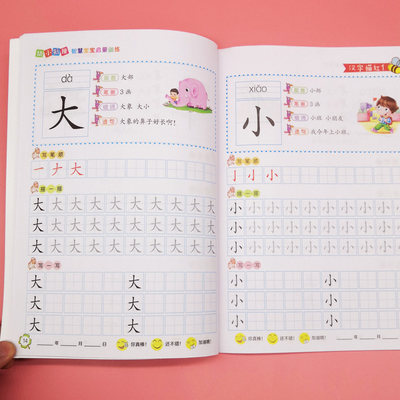 智慧宝宝启蒙训练
dà
大
部首 大部
笔画 3画
组词 大象 大小
造句 大象的鼻子好长啊!
写笔顺
一 ナ 大
描一描
大 大 大 大 大 大 大 大 大 大
大 大 大 大 大 大 大 大 大 大
大 大 大 大 大 大 大 大 大 大
写一写
大 大
大 大
大 大
14
年 月 日 你真棒! 还不错! 加油哦!
汉字描红1
xiǎo
小
部首 小部
笔画 3画
组词 小班 小朋友
造句 我今年上小班。
写笔顺
亅 小 小
描一描
小 小 小 小 小 小 小 小 小
小 小 小 小 小 小 小 小 小
小 小 小 小 小 小 小 小 小
写一写
小 小
小 小
小 小
年 月 日 你真棒! 还不错! 加油哦!